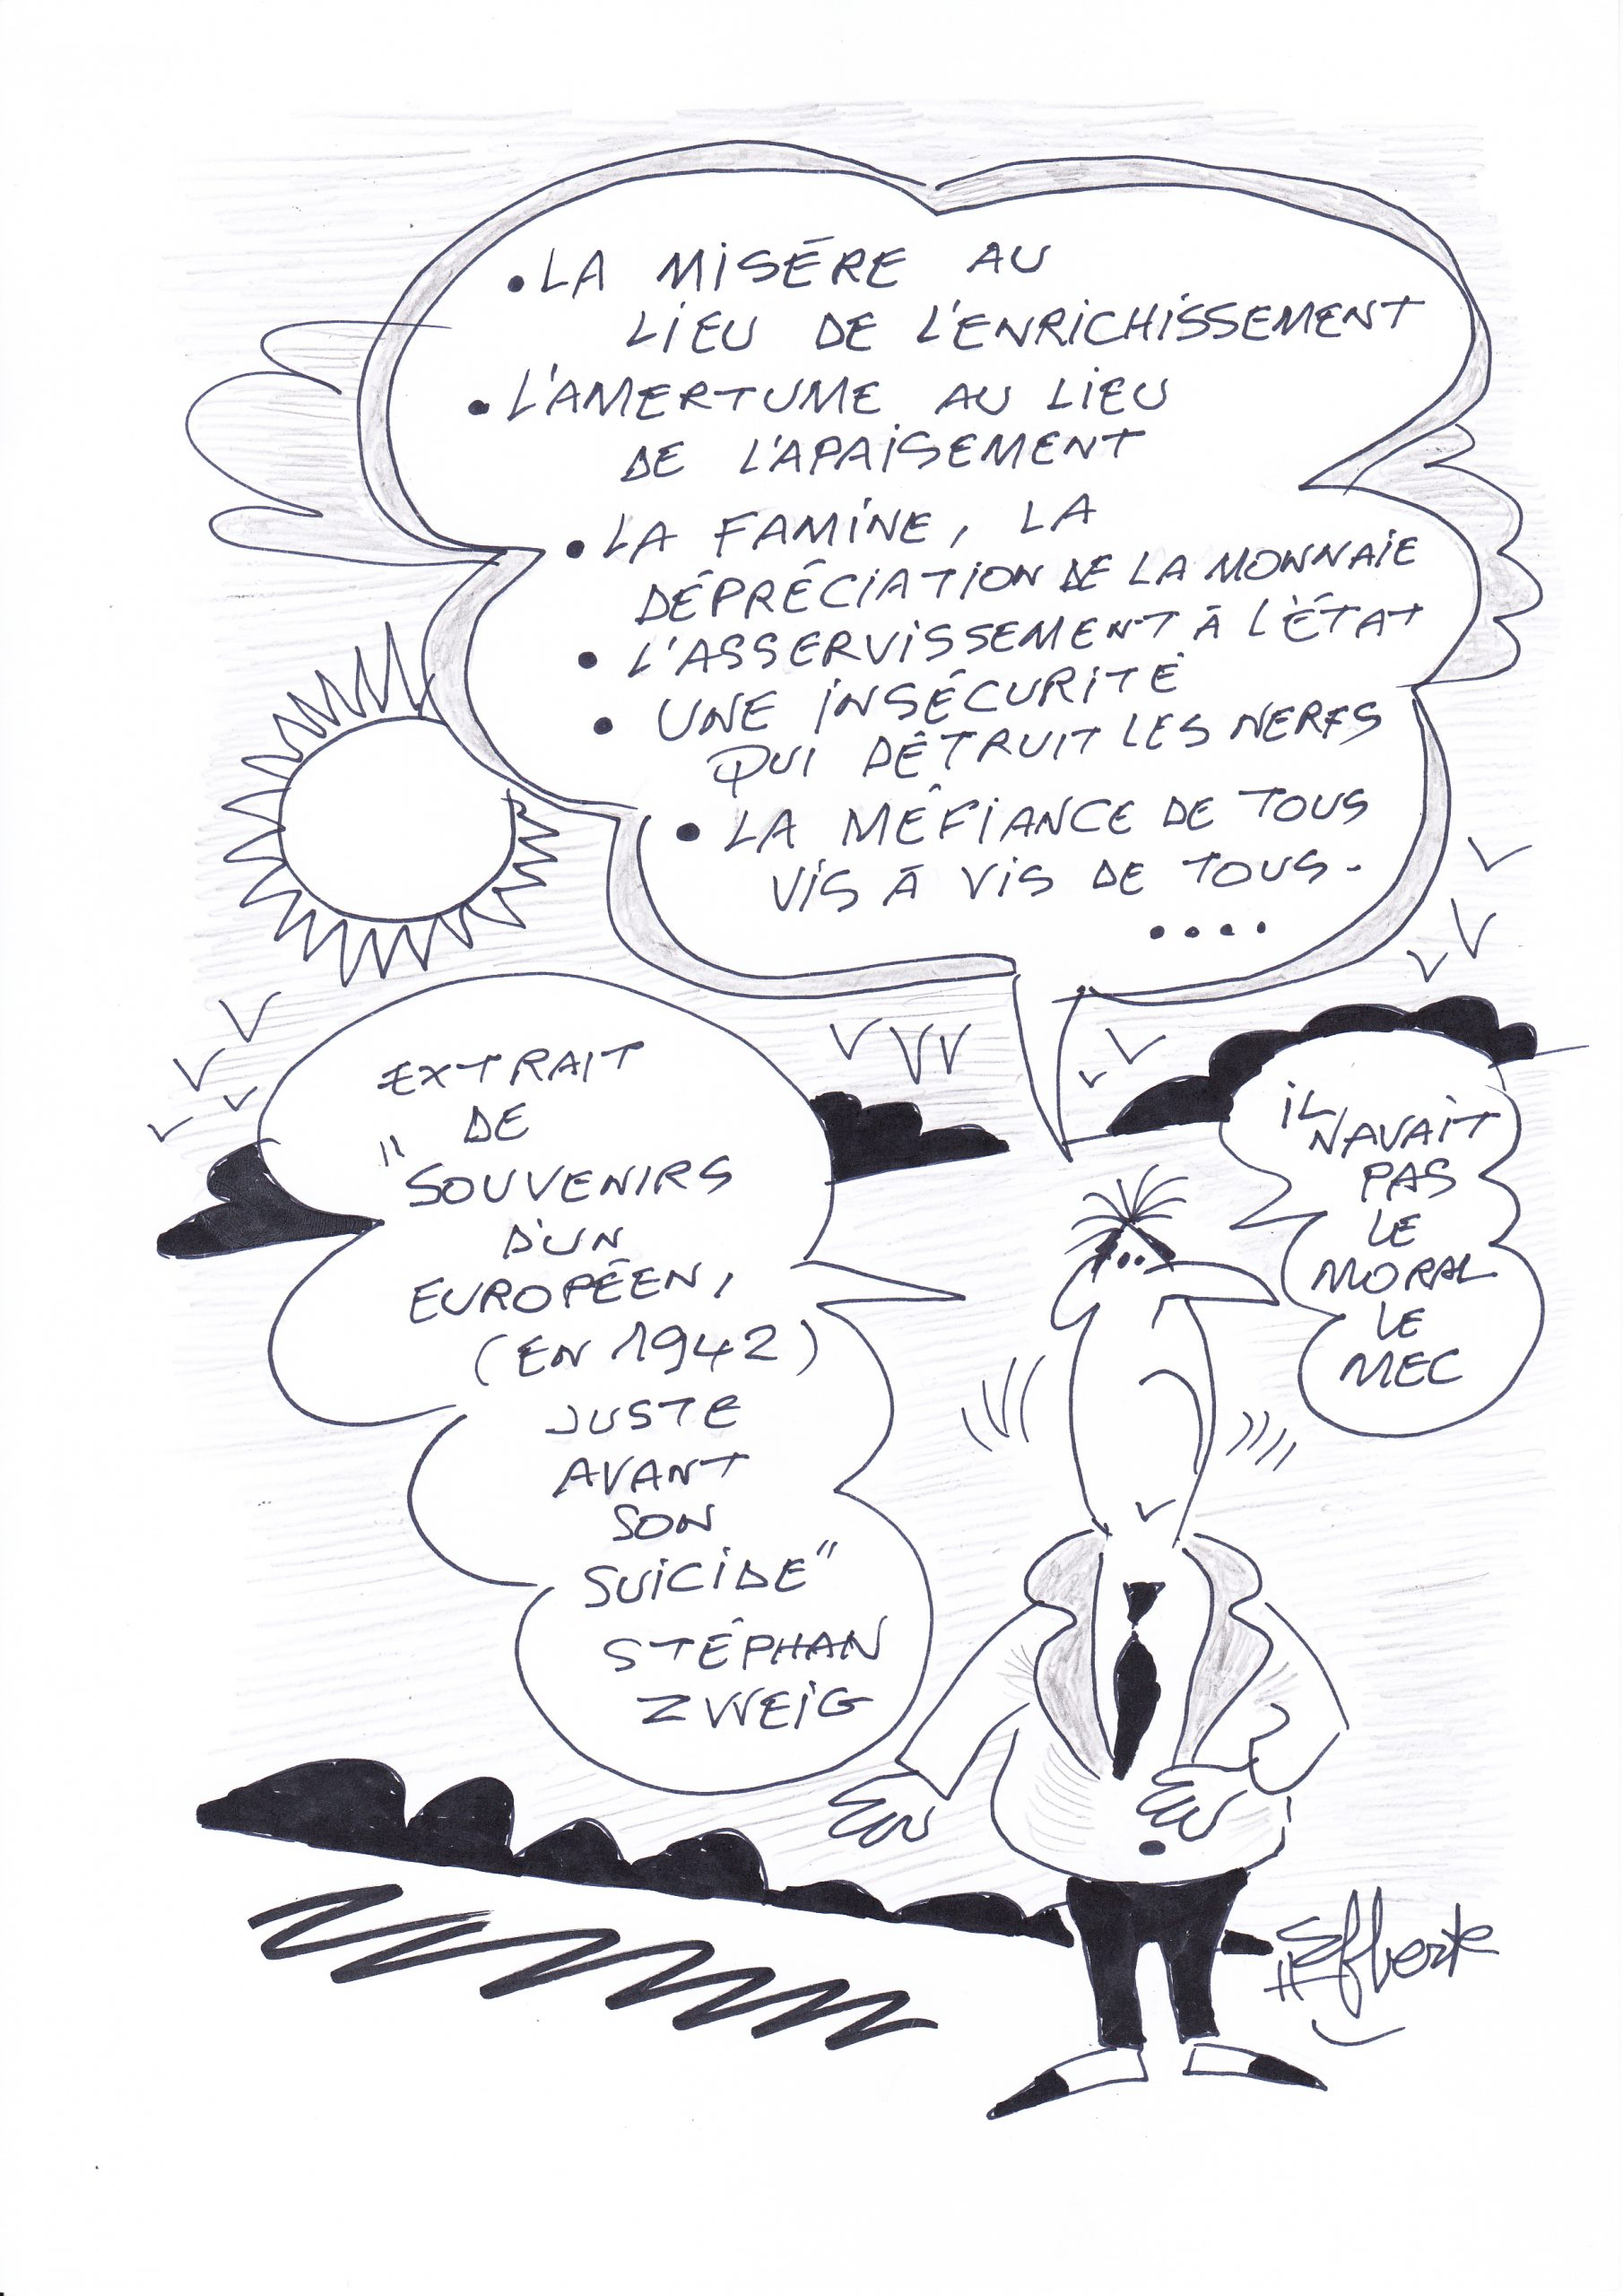 • LA MISÉRE AU
LIEU DE L'ENRICHISSEMENT
• L'AMERTUME AU LIEU
DE L'APAISEMENT
• LA FAMINE, LA
DÉPRÉCIATION DE LA MONNAIE
• L'ASSERVISSEMENT À L'ÉTAT
• UNE INSÉCURITÉ
QUI DÉTRUIT LES NERFS
• LA MÉFIANCE DE TOUS
VIS À VIS DE TOUS.
....
EXTRAIT
DE
"SOUVENIRS
D'UN
EUROPÉEN,
(EN 1942)
JUSTE
AVANT
SON
SUICIDE"
STÉPHAN
ZWEIG
IL
N'AVAIT
PAS
LE
MORAL
LE
MEC